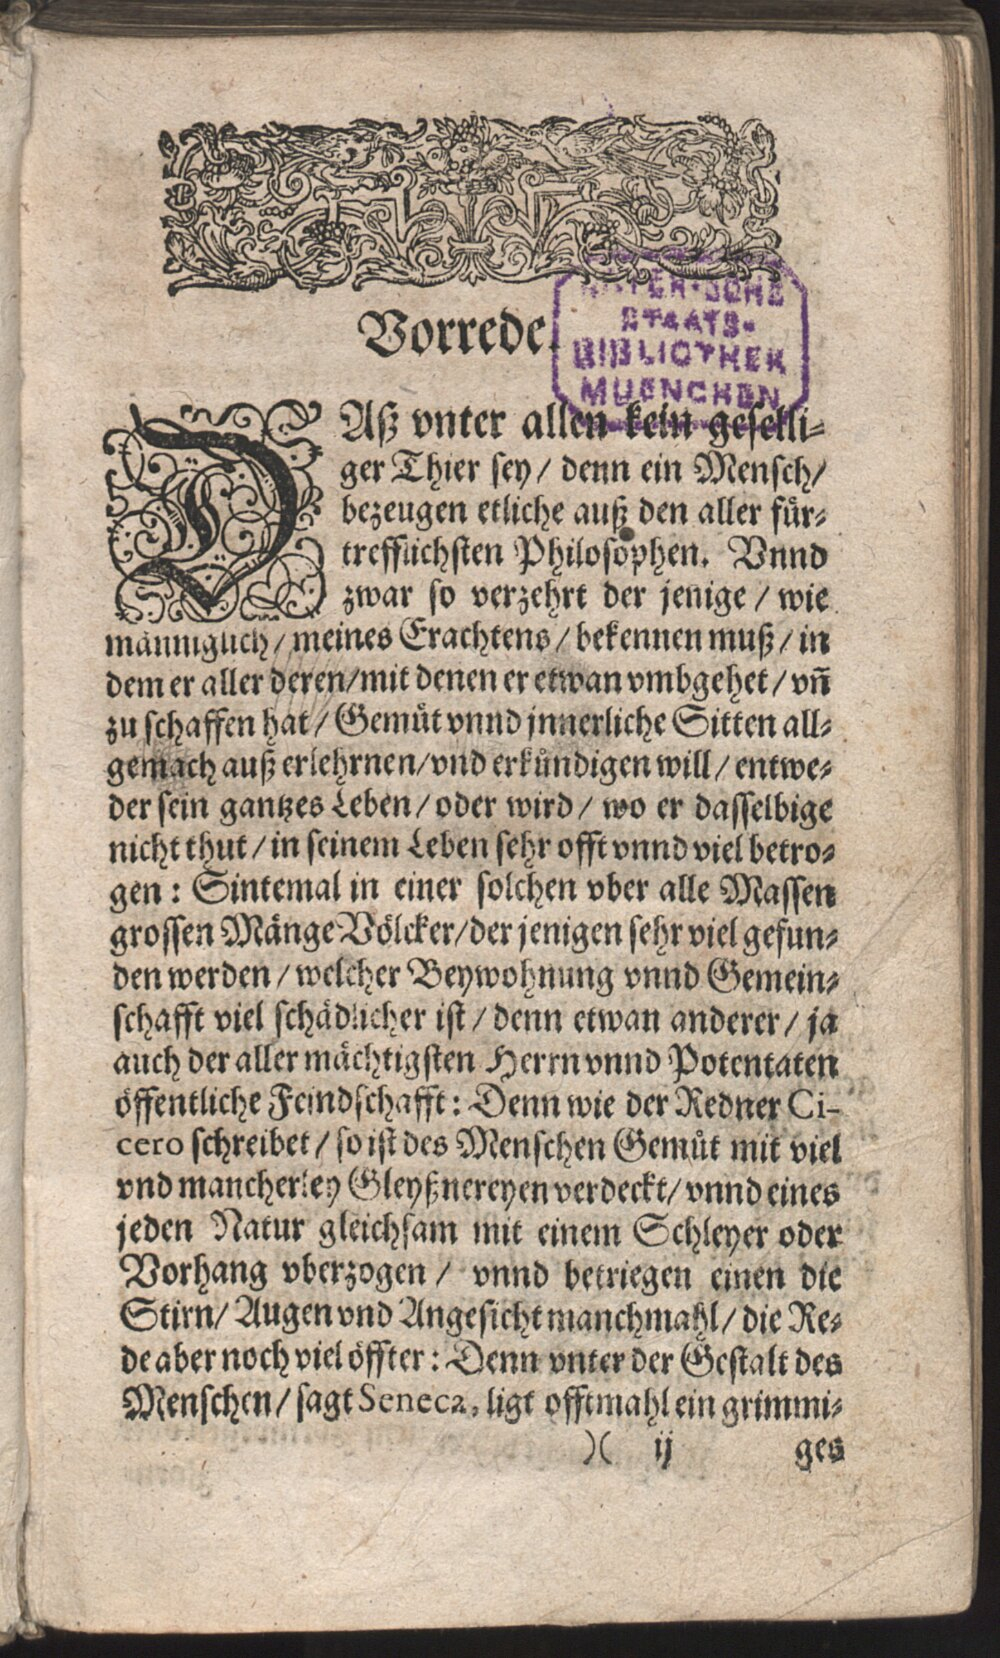 BAYER·SCHE
STAATS-
BIBLIOTHEK
MUENCHEN
Vorrede.
DAß vnter allen kein geselli-
ger Thier sey / denn ein Mensch /
bezeugen etliche auß den aller fuͤr-
trefflichsten Philosophen. Vnnd
zwar so verzehrt der jenige / wie
maͤnniglich / meines Erachtens / bekennen muß / in
dem er aller deren / mit denen er etwan vmbgehet / vñ
zu schaffen hat / Gemuͤt vnnd jnnerliche Sitten all-
gemach auß erlehrnen / vnd erkuͤndigen will / entwe-
der sein gantzes Leben / oder wird / wo er dasselbige
nicht thut / in seinem Leben sehr offt vnnd viel betro-
gen : Sintemal in einer solchen vber alle Massen
grossen Maͤnge Voͤlcker / der jenigen sehr viel gefun-
den werden / welcher Beywohnung vnnd Gemein-
schafft viel schaͤdlicher ist / denn etwan anderer / ja
auch der aller maͤchtigsten Herrn vnnd Potentaten
oͤffentliche Feindschafft : Denn wie der Redner Ci-
cero schreibet / so ist des Menschen Gemuͤt mit viel
vnd mancherley Gleyßnereyen verdeckt / vnnd eines
jeden Natur gleichsam mit einem Schleyer oder
Vorhang vberzogen / vnnd betriegen einen die
Stirn / Augen vnd Angesicht manchmahl / die Re-
de aber noch viel oͤffter : Denn vnter der Gestalt des
Menschen / sagt Seneca, ligt offtmahl ein grimmi-
)( ij ges